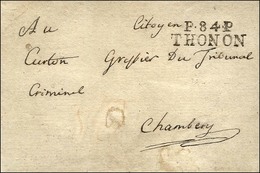 Au Citoyen P.84.P
THONON
Curton Greffier Du Tribunal
Criminel
Chambery